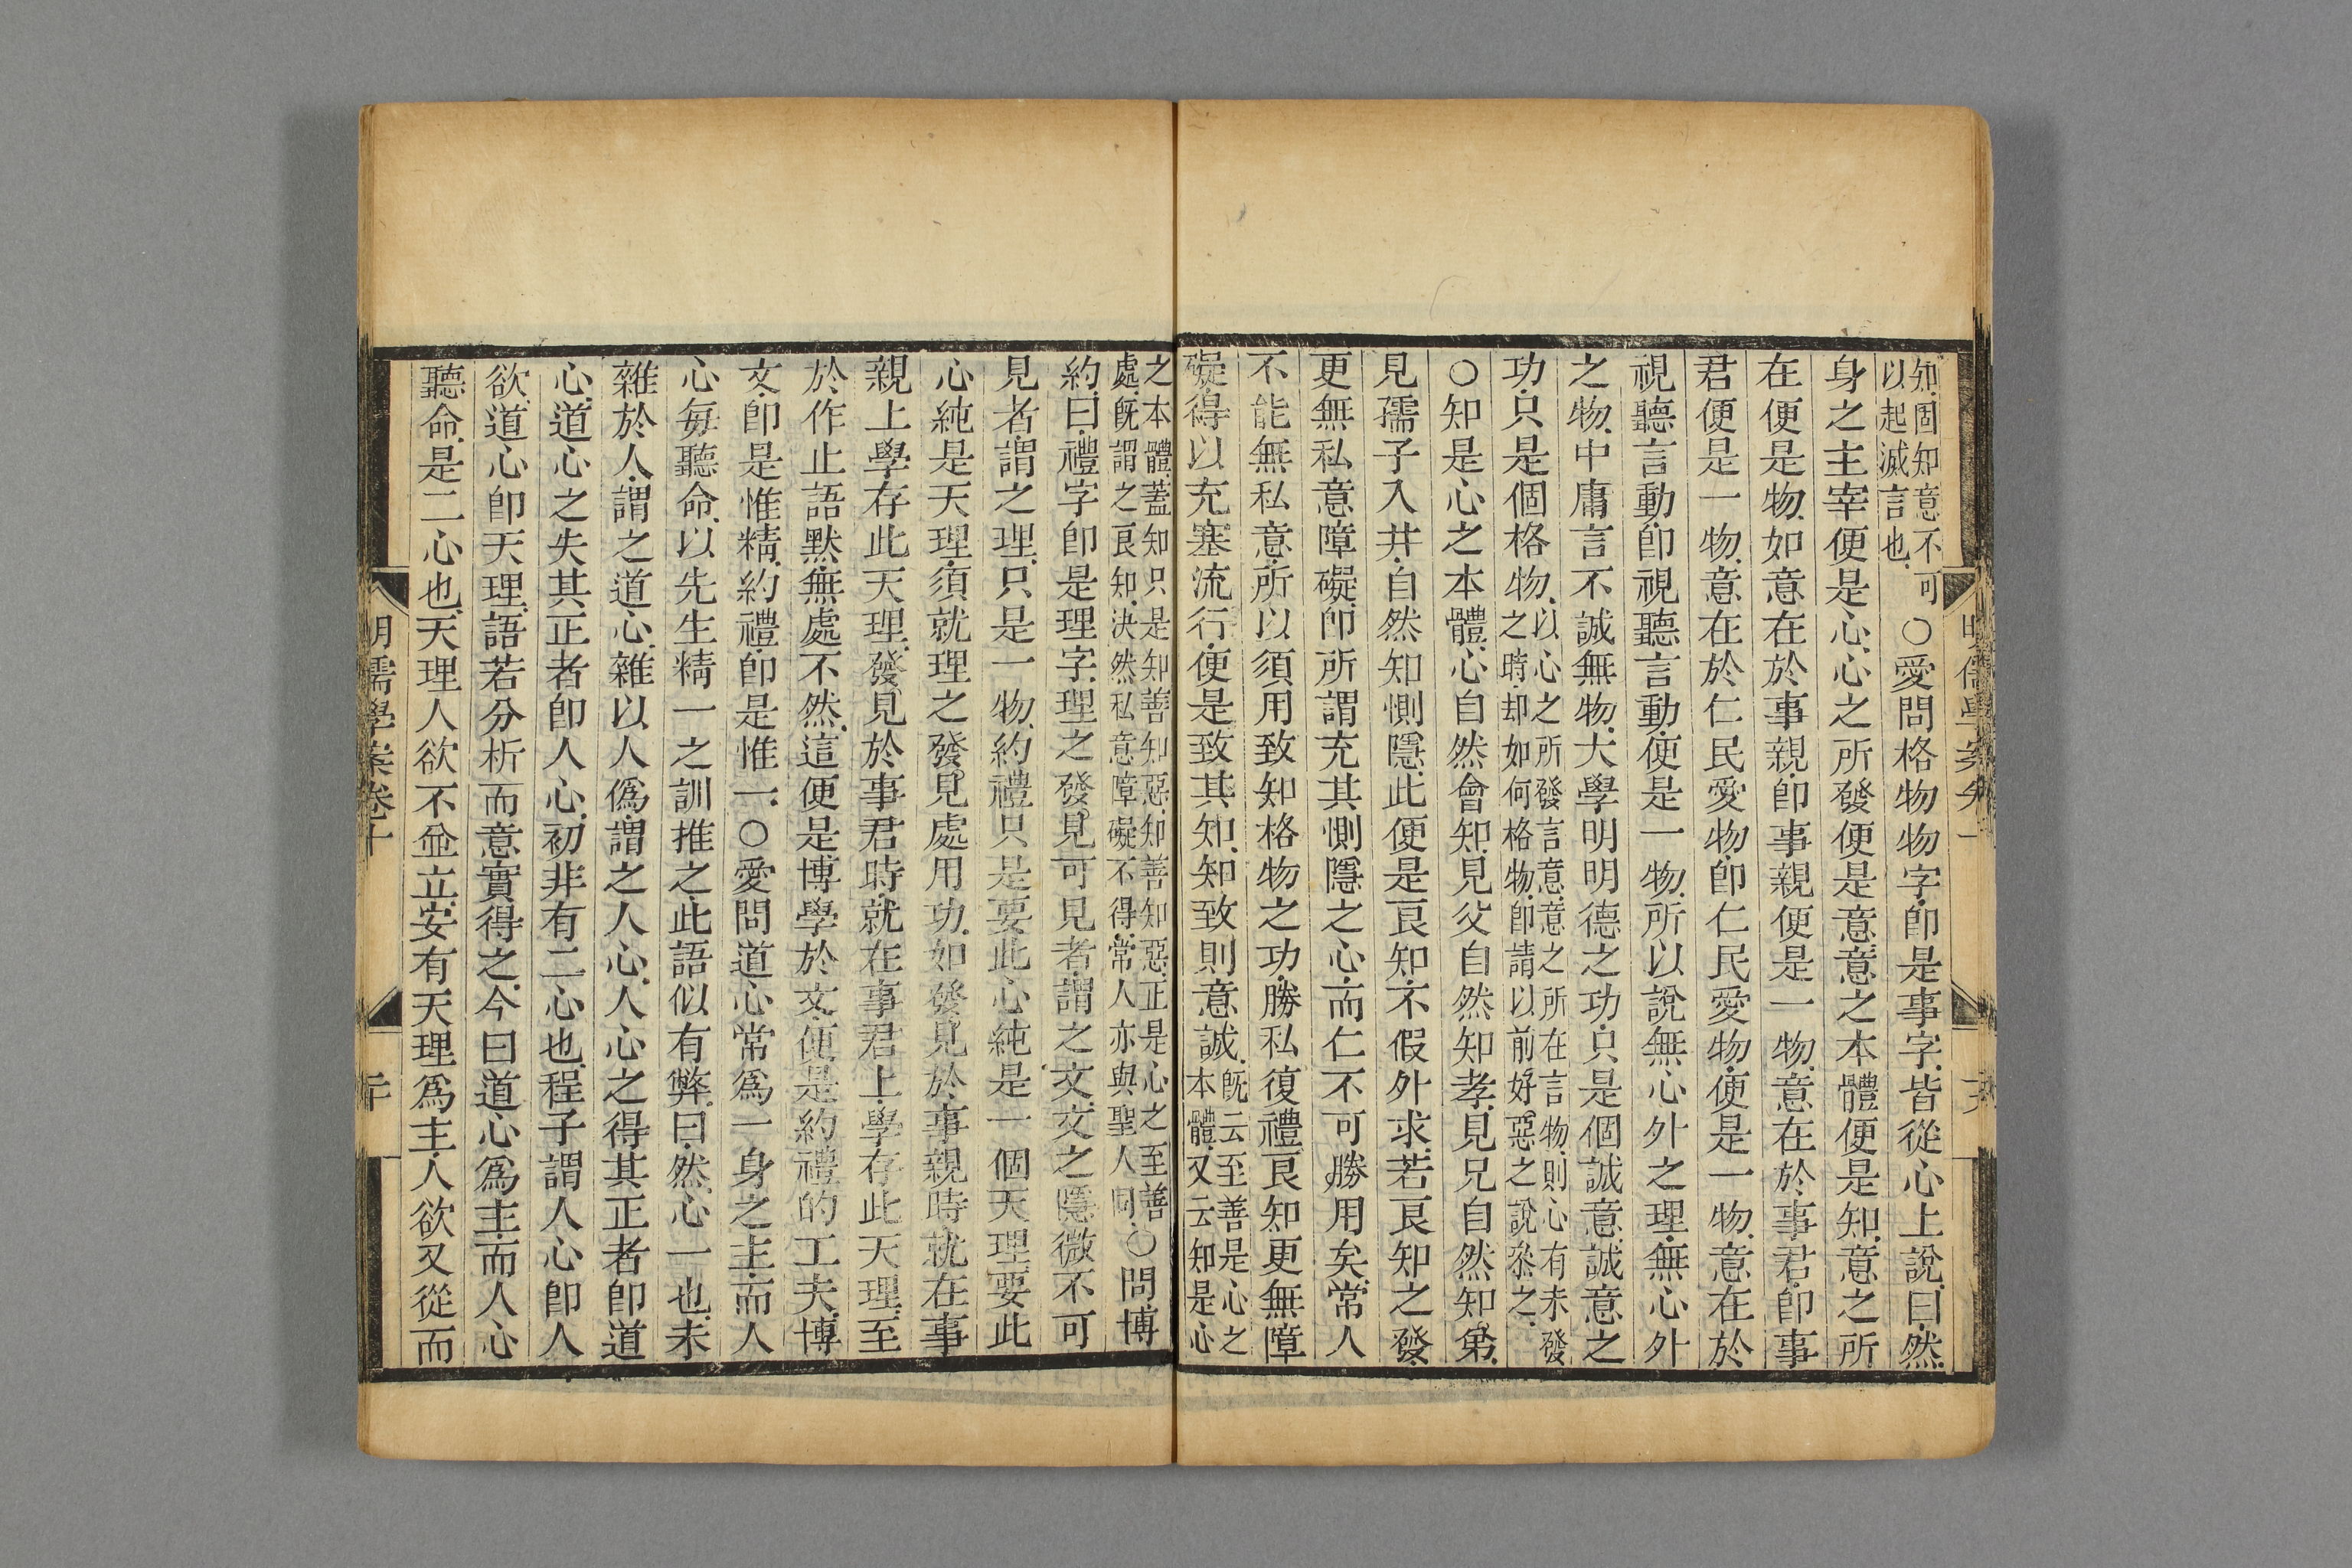 知固知意不可
以起滅言也
○愛問格物物字卽是事字皆從心上說曰然
身之主宰便是心心之所發便是意意之本體便是知意之所
在便是物如意在於事親卽事親便是一物意在於事君卽事
君便是一物意在於仁民愛物卽仁民愛物便是一物意在於
視聽言動卽視聽言動便是一物所以說無心外之理無心外
之物中庸言不誠無物大學明明德之功只是個誠意誠意之
功只是個格物
以心之所發言意意之所在言物則心有未發
之時却如何格物卽請以前好惡之說叅之
○知是心之本體心自然會知見父自然知孝見兄自然知第
見孺子入井自然知惻隱此便是良知不假外求若良知之發
更無私意障礙卽所謂充其惻隱之心而仁不可勝用矣常人
不能無私意所以須用致知格物之功勝私復禮良知更無障
礙得以充塞流行便是致其知知致則意誠
旣云至善是心之
本體又云知是心
之本體葢知只是知善知惡知善知惡正是心之至善
處旣謂之良知決然私意障礙不得常人亦與聖人同
○問博
約曰禮字卽是理字理之發見可見者謂之文文之隱微不可
見者謂之理只是一物約禮只是要此心純是一個天理要此
心純是天理須就理之發見處用功如發見於事親時就在事
親上學存此天理發見於事君時就在事君上學存此天理至
於作止語默無處不然這便是博學於文便是約禮的工夫博
文卽是惟精約禮卽是惟一○愛問道心常爲一身之主而人
心每聽命以先生精一之訓推之此語似有弊曰然心一也未
雜於人謂之道心雜以人僞謂之人心人心之得其正者卽道
心道心之失其正者卽人心初非有二心也程子謂人心卽人
欲道心卽天理語若分析而意實得之今曰道心爲主而人心
聽命是二心也天理人欲不並立安有天理爲主人欲又從而
明儒學案卷十